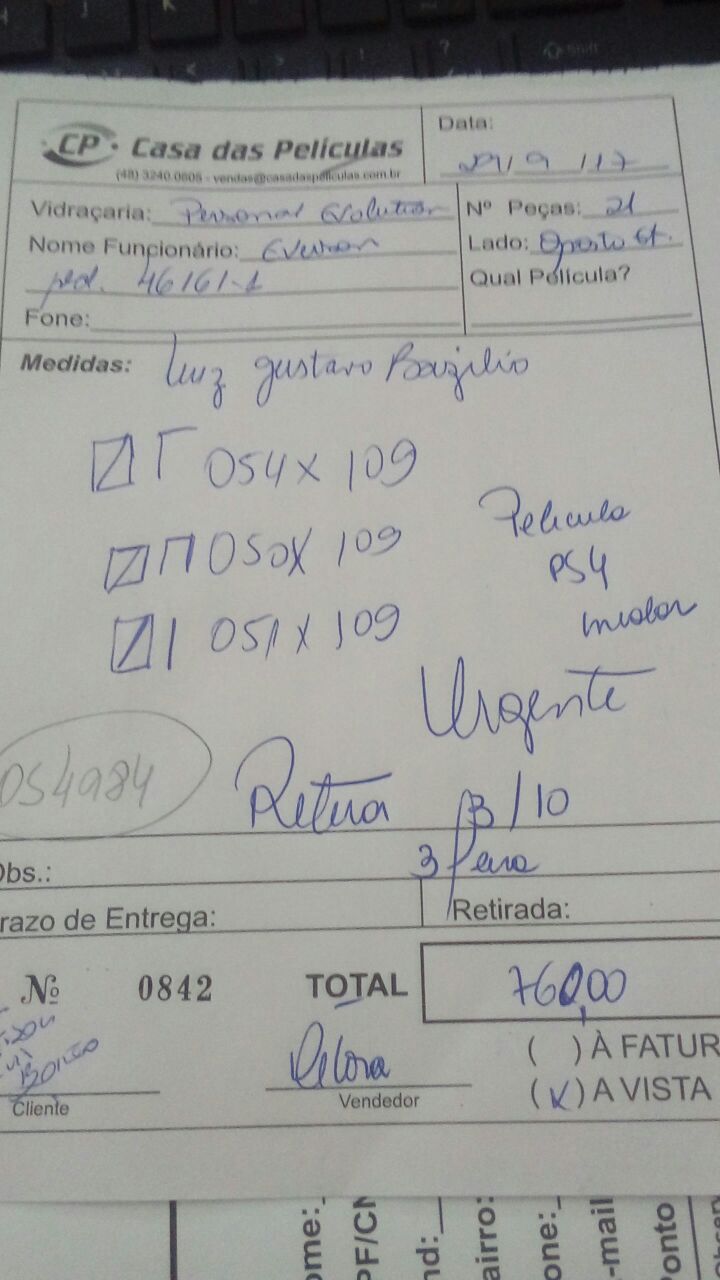 CP · Casa das Películas
(48) 3240.0605 - vendas@casadaspeliculas.com.br
Data:
29/9/17
Vidraçaria: Personal Evolution
Nº Peças: 21
Nome Funcionário: Everson
Lado: Oposto
ped. 46161-1
Qual Película?
Fone:
Medidas: Luiz gustavo Bazilio
054 X 109
050 X 109
051 X 109
Pelicula
PS4
incolor
Urgente
054984
Retira 3/10
Obs.:
3 feira
razo de Entrega:
Retirada:
Nº 0842
TOTAL
760,00
( ) À FATUR
(X) A VISTA
Cliente
Vendedor
ome:
PF/CN
nd:
airro:
one:
-mail
onto